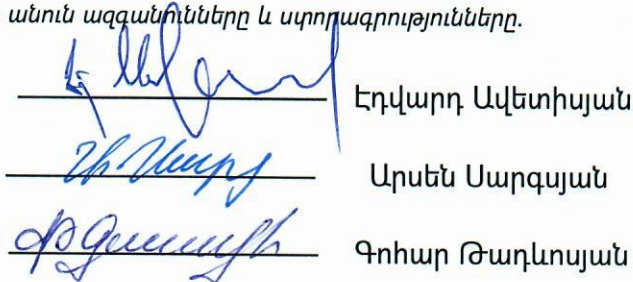 անուն ազգանունները և ստորագրությունները.
Էդվարդ Ավետիսյան
Արսեն Սարգսյան
Գոհար Թադևոսյան